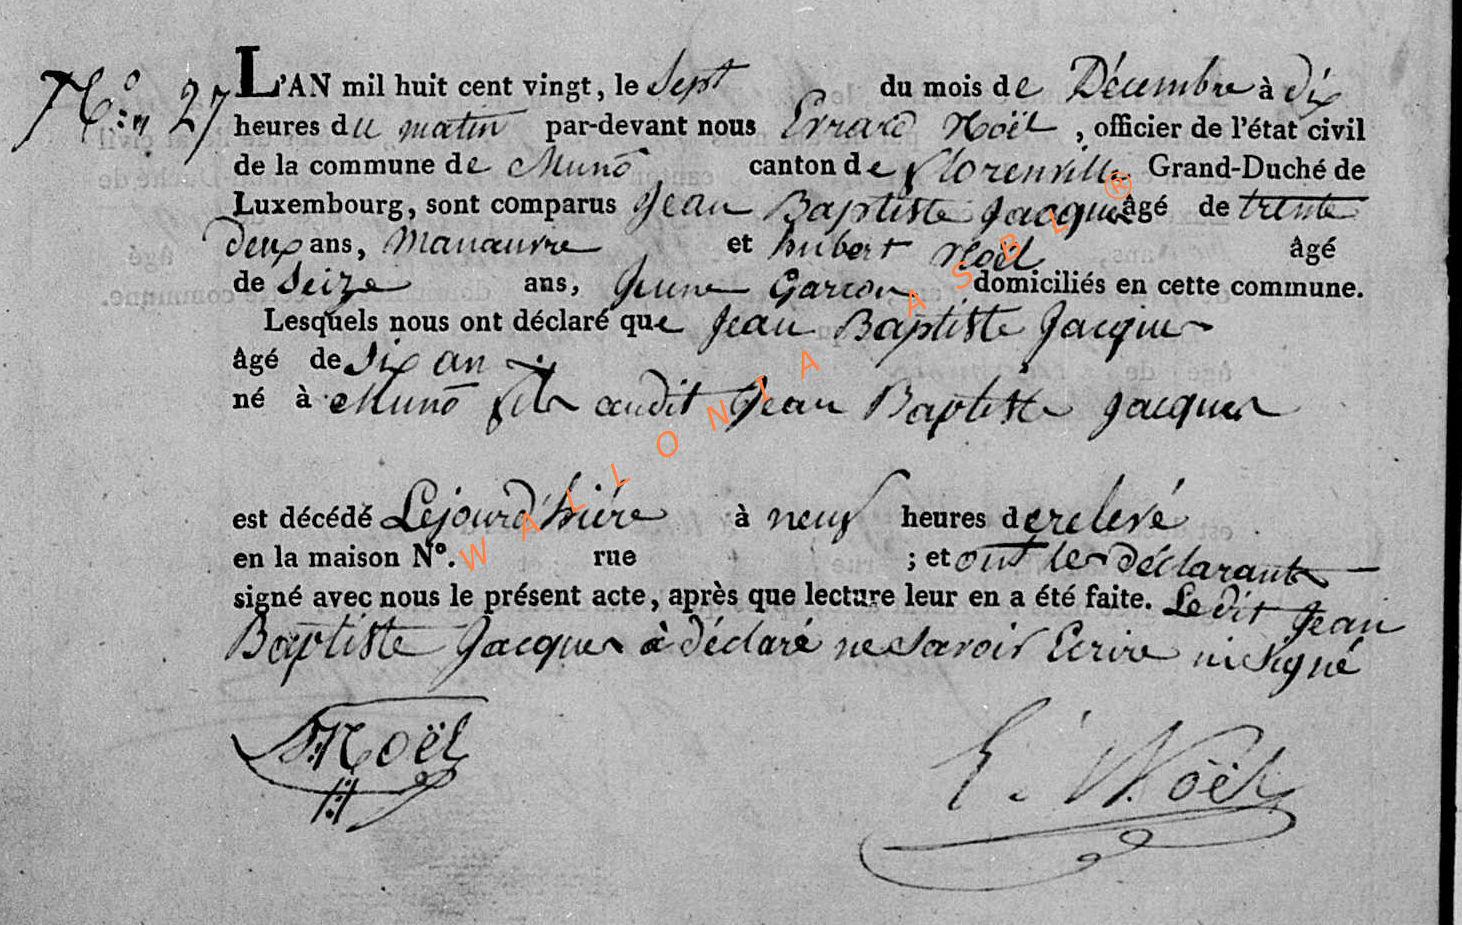 N.º 27
L'AN mil huit cent vingt, le Sept du mois de Décembre à dix
heures du matin par-devant nous Errard Noël, officier de l'état civil
de la commune de Muno canton de florenville Grand-Duché de
Luxembourg, sont comparus Jean Baptiste Jacques âgé de trente
deux ans, Manœuvre et hubert Noël âgé
de Seize ans, Jeune Garcon domiciliés en cette commune.
Lesquels nous ont déclaré que Jean Baptiste Jacques
âgé de Six an
né à Muno fils audit Jean Baptiste Jacques
est décédé Lejourd'hiére à neuf heures derelevé
en la maison Nº. rue ; et ont les déclarants
signé avec nous le présent acte, après que lecture leur en a été faite. Ledit Jean
Baptiste Jacques à déclaré ne Savoir Ecrire ni Signé
Noël
E. Noël
WALLONIA ASBL ®